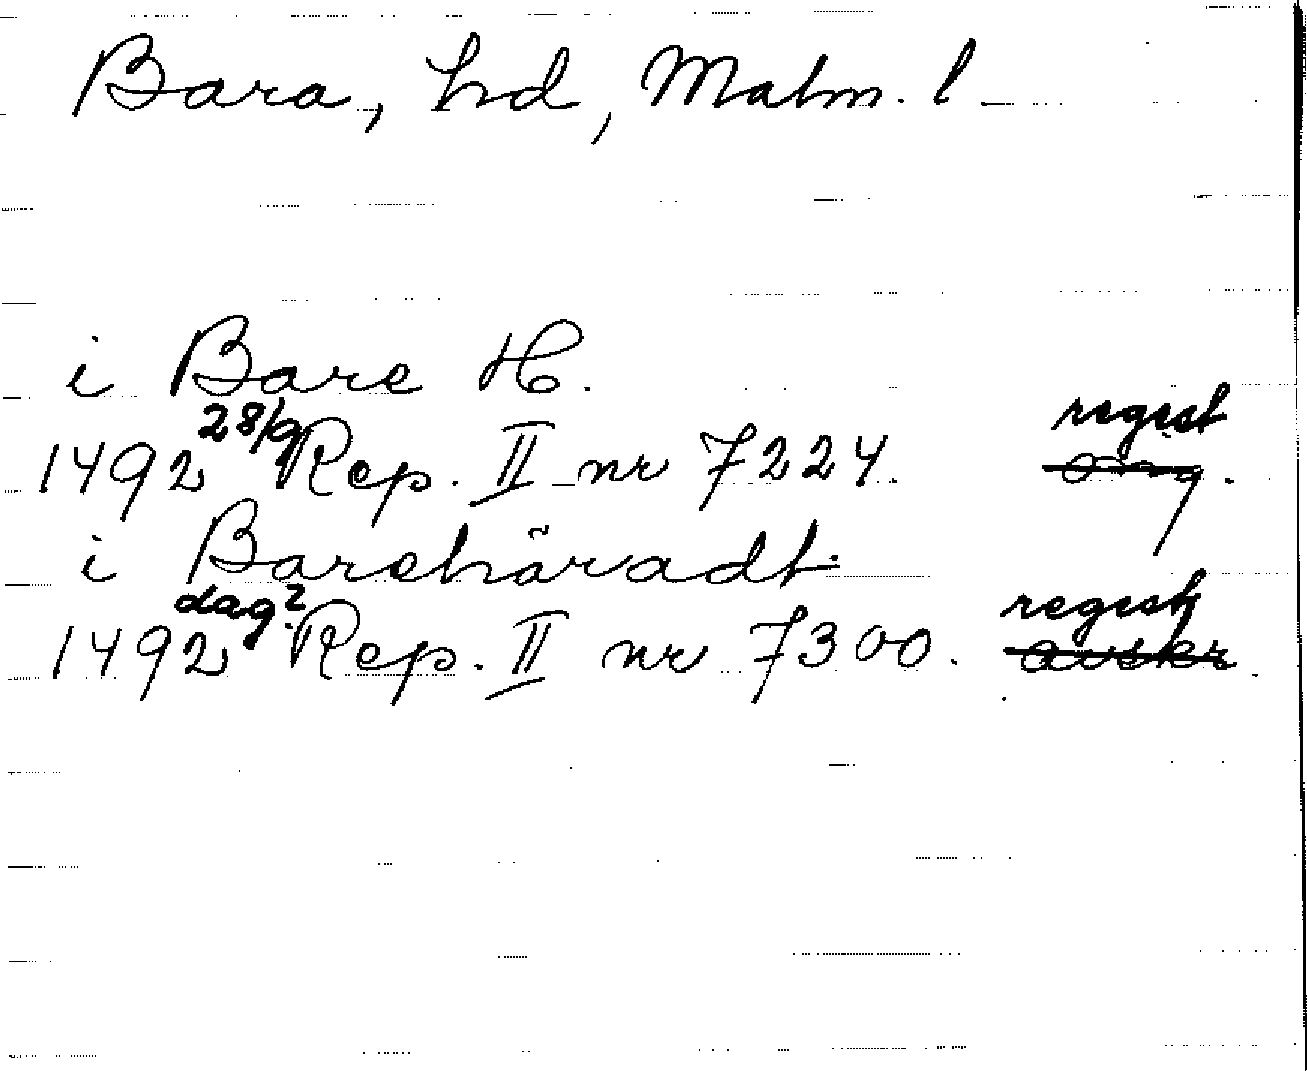 Bara, hd, Malm. l
i Bare H.
1492 28/9 Rep. II nr 7224. regest
orig.
i Barehäradt
1492 dag? Rep. II nr 7300. regest
avskr.